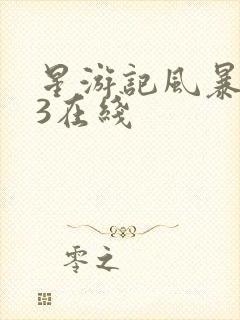 星游記風暴
3在綫
零之